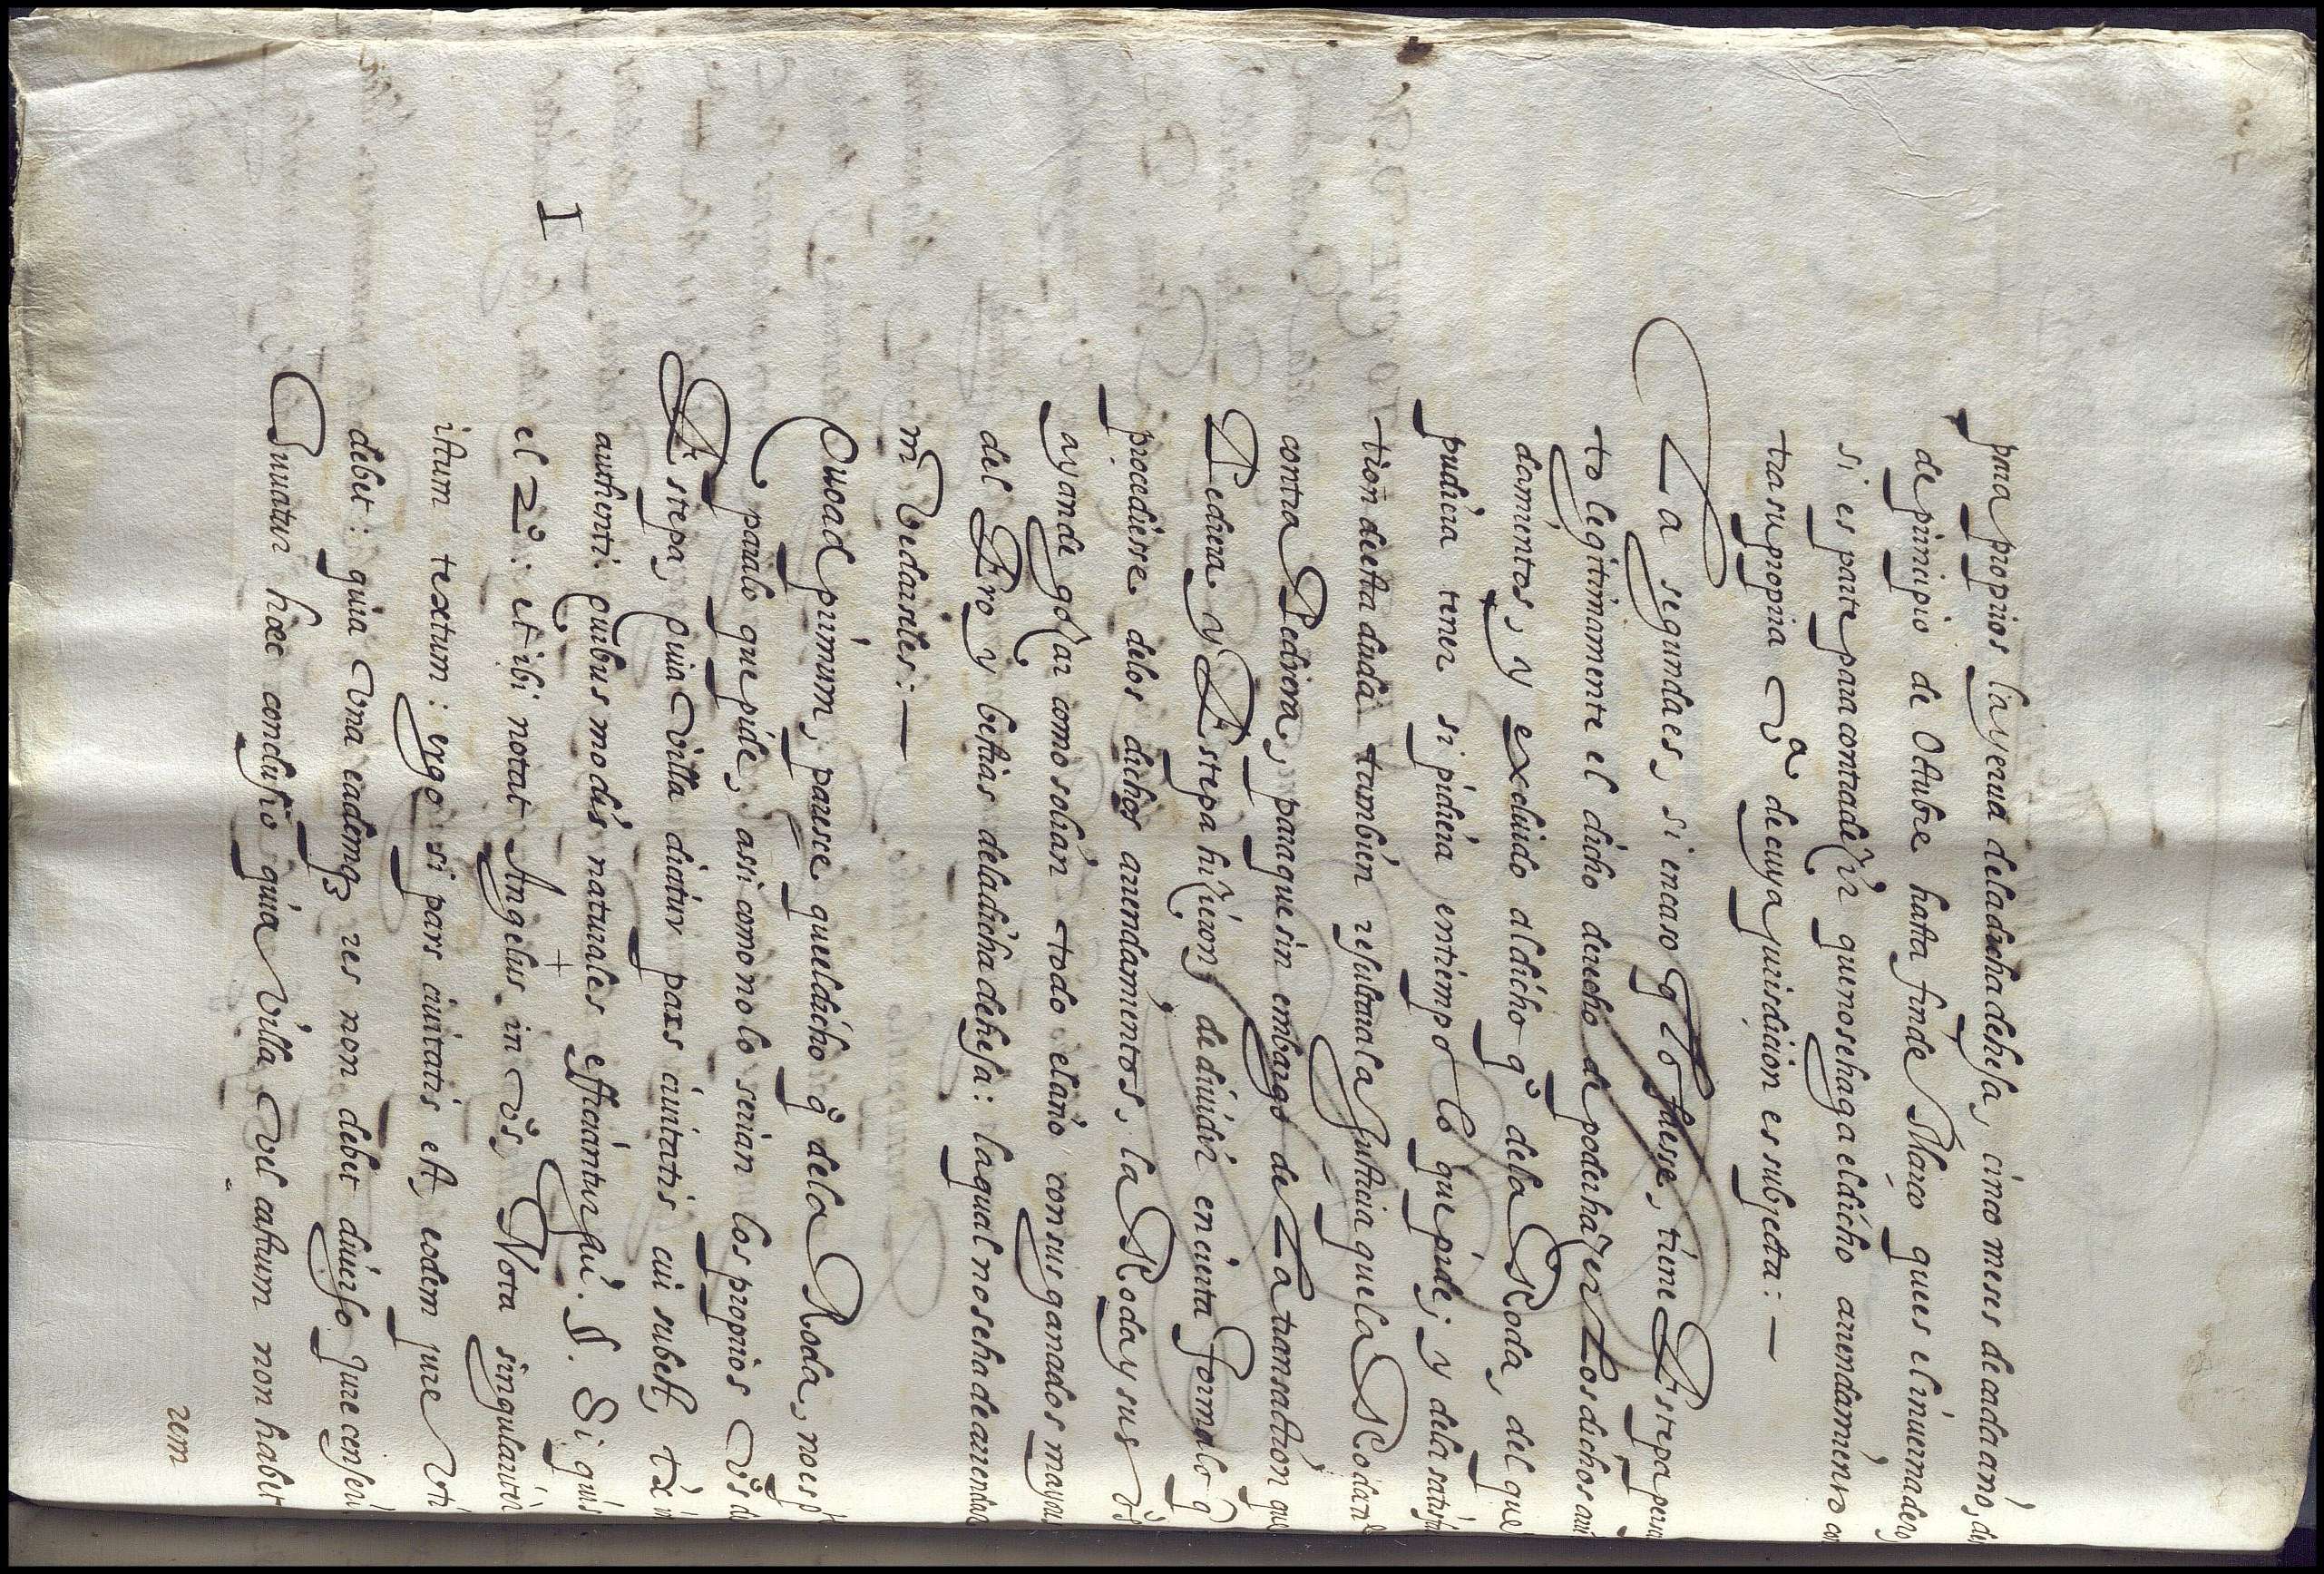 para propios la yerua deladicha dehesa, cinco meses de cada año, des
de principio de Octubre hasta fin de Março que es el inuernadero
si es parte para contradezir que no se haga el dicho arrendamiento con
tra su propria Vª de cuya jurisdicion es subjecta: —
La segunda es, si en caso q lo fuesse, tiene Estepa perdi
to legitimamente el dicho derecho de poder hazer los dichos arren
damientos, y excluido al dicho qº dela Roda, del que
pudiera tener si pidiera en tiempo lo que pide; y dela satisfa
tion de esta duda tambien resultara la justicia que la Roda tiene
contra Pedrera, para que sin embargo de la transaction que
Pedrera y Estepa hizieron de diuidir en cierta forma lo q
procediesse delos dichos arrendamientos, la Roda y sus vºs
ayan de gozar como solian todo el año con sus ganados mayores
del Pro y bestias de la dicha dehesa: la qual no se ha de arrendar
ni vedarseles: —
Quoad primum, paresce que el dicho qº dela Roda, no es p
para lo que pide, assi como no lo serian los proprios vºs de
Estepa, quia villa dicitur pars ciuitatis cui subest, tx in
authenti quibus modis naturales efficiantur sui. §. Si quis
I
el 2º: et ibi notat Angelus + in vs, Nota singulariter
istum textum: ergo si pars ciuitatis est, eodem jure vti
debet: quia vna eademqȝ res non debet diuerso jure censeri
Iuuatur hæc conclusio quia villa vel castrum non habet
rem